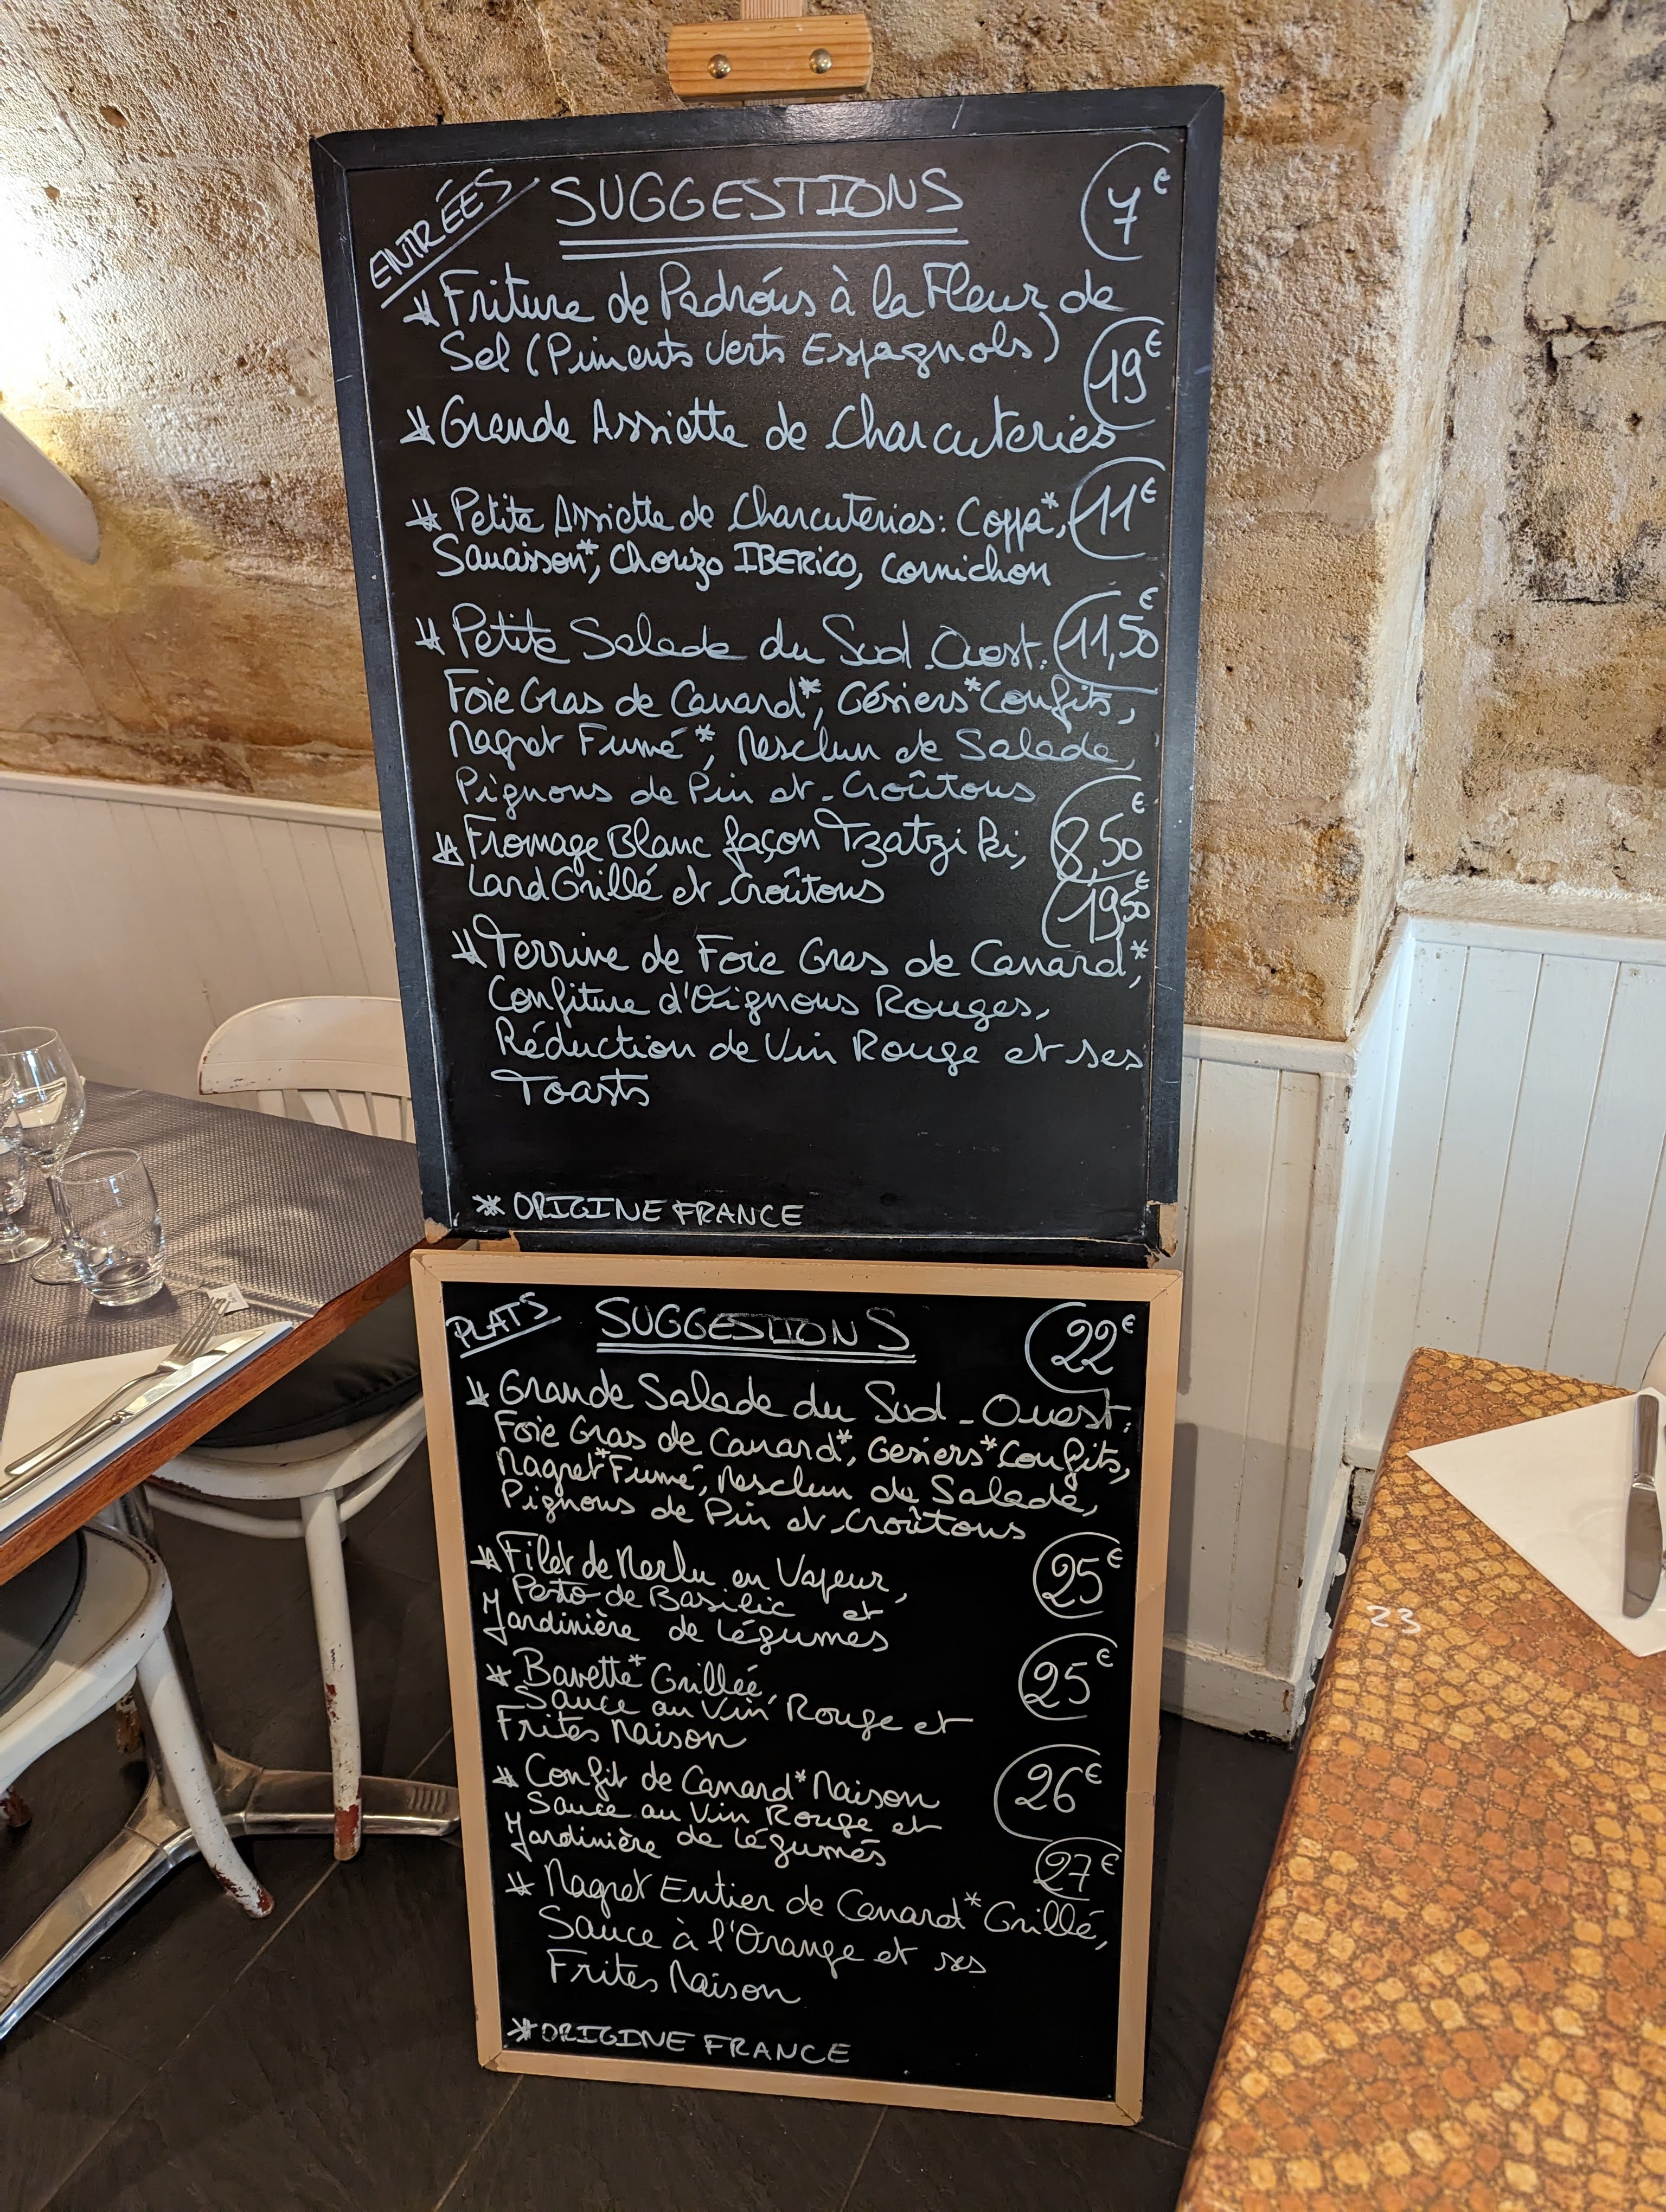 ENTRÉES SUGGESTIONS 7€
* Friture de Padróns à la Fleur de
Sel (Piments Verts Espagnols) 19€
* Grande Assiette de Charcuteries
* Petite Assiette de Charcuteries: Coppa*, 11€
Saucisson*, Chorizo IBERICO, Cornichon
* Petite Salade du Sud-Ouest: 11,50€
Foie Gras de Canard*, Gésiers* Confits,
Magret Fumé*, Mesclun de Salade,
Pignons de Pin et Croûtons
* Fromage Blanc façon Tzatziki, 8,50€
Lard Grillé et Croûtons 19,50€
* Terrine de Foie Gras de Canard*,
Confiture d'Oignons Rouges,
Réduction de Vin Rouge et ses
Toasts
* ORIGINE FRANCE
PLATS SUGGESTIONS 22€
* Grande Salade du Sud-Ouest:
Foie Gras de Canard*, Gesiers* Confits,
Magret* Fumé, Mesclun de Salade,
Pignons de Pin et Croûtons
* Filet de Merlu en Vapeur, 25€
Pesto de Basilic et
Jardinière de Légumes
* Bavette* Grillée, 25€
Sauce au Vin Rouge et
Frites Maison
* Confit de Canard* Maison 26€
Sauce au Vin Rouge et
Jardinière de Légumes
27€
* Magret Entier de Canard* Grillé,
Sauce à l'Orange et ses
Frites Maison
* ORIGINE FRANCE
23